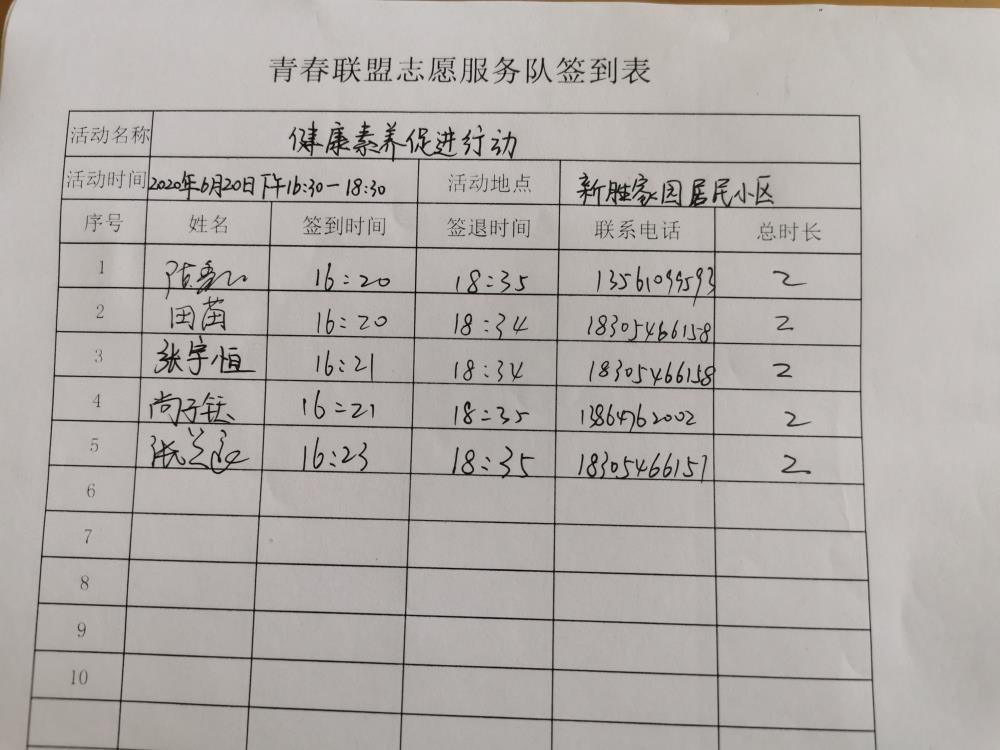 青春联盟志愿服务队签到表
活动名称 健康素养促进行动
活动时间 2020年6月20日下午16:30-18:30 活动地点 新胜家园居民小区
序号 姓名 签到时间 签退时间 联系电话 总时长
1 16:20 18:35 13561099593 2
2 田苗 16:20 18:34 18305466158 2
3 张宇恒 16:21 18:34 18305466158 2
4 尚子钰 16:21 18:35 13864762002 2
5 16:23 18:35 18305466157 2
6
7
8
9
10